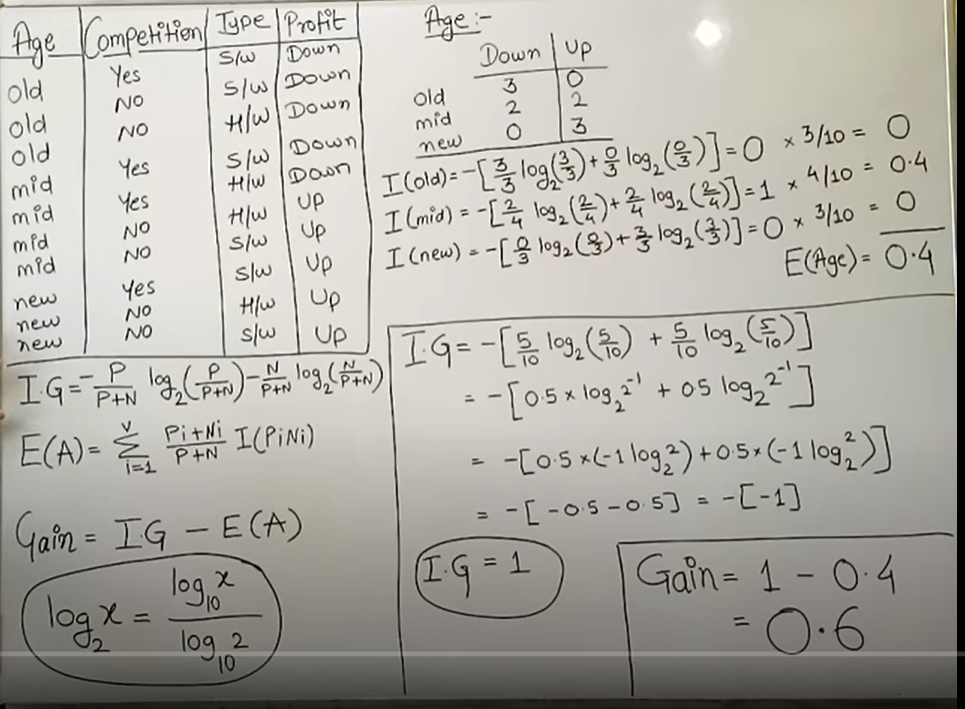 Age Competition Type Profit
old Yes S/W Down
old NO S/W Down
old NO H/W Down
mid Yes S/W Down
mid Yes H/W Down
mid NO H/W UP
mid NO S/W Up
new Yes S/W Up
new NO H/W Up
new NO S/W Up
I.G = -P/P+N log₂(P/P+N) - N/P+N log₂(N/P+N)
E(A) = ᵛΣᵢ₌₁ Pi+Ni/P+N I(PiNi)
Gain = I.G - E(A)
log₂x = log₁₀x / log₁₀2
Age:-
Down Up
old 3 0
mid 2 2
new 0 3
I(old) = -[3/3 log₂(3/3) + 0/3 log₂(0/3)] = 0 × 3/10 = 0
I(mid) = -[2/4 log₂(2/4) + 2/4 log₂(2/4)] = 1 × 4/10 = 0.4
I(new) = -[0/3 log₂(0/3) + 3/3 log₂(3/3)] = 0 × 3/10 = 0
E(Age) = 0.4
I.G = -[5/10 log₂(5/10) + 5/10 log₂(5/10)]
= -[0.5 × log₂2⁻¹ + 0.5 log₂2⁻¹]
= -[0.5 × (-1 log₂2) + 0.5 × (-1 log₂2)]
= -[-0.5 - 0.5] = -[-1]
I.G = 1
Gain = 1 - 0.4
= 0.6